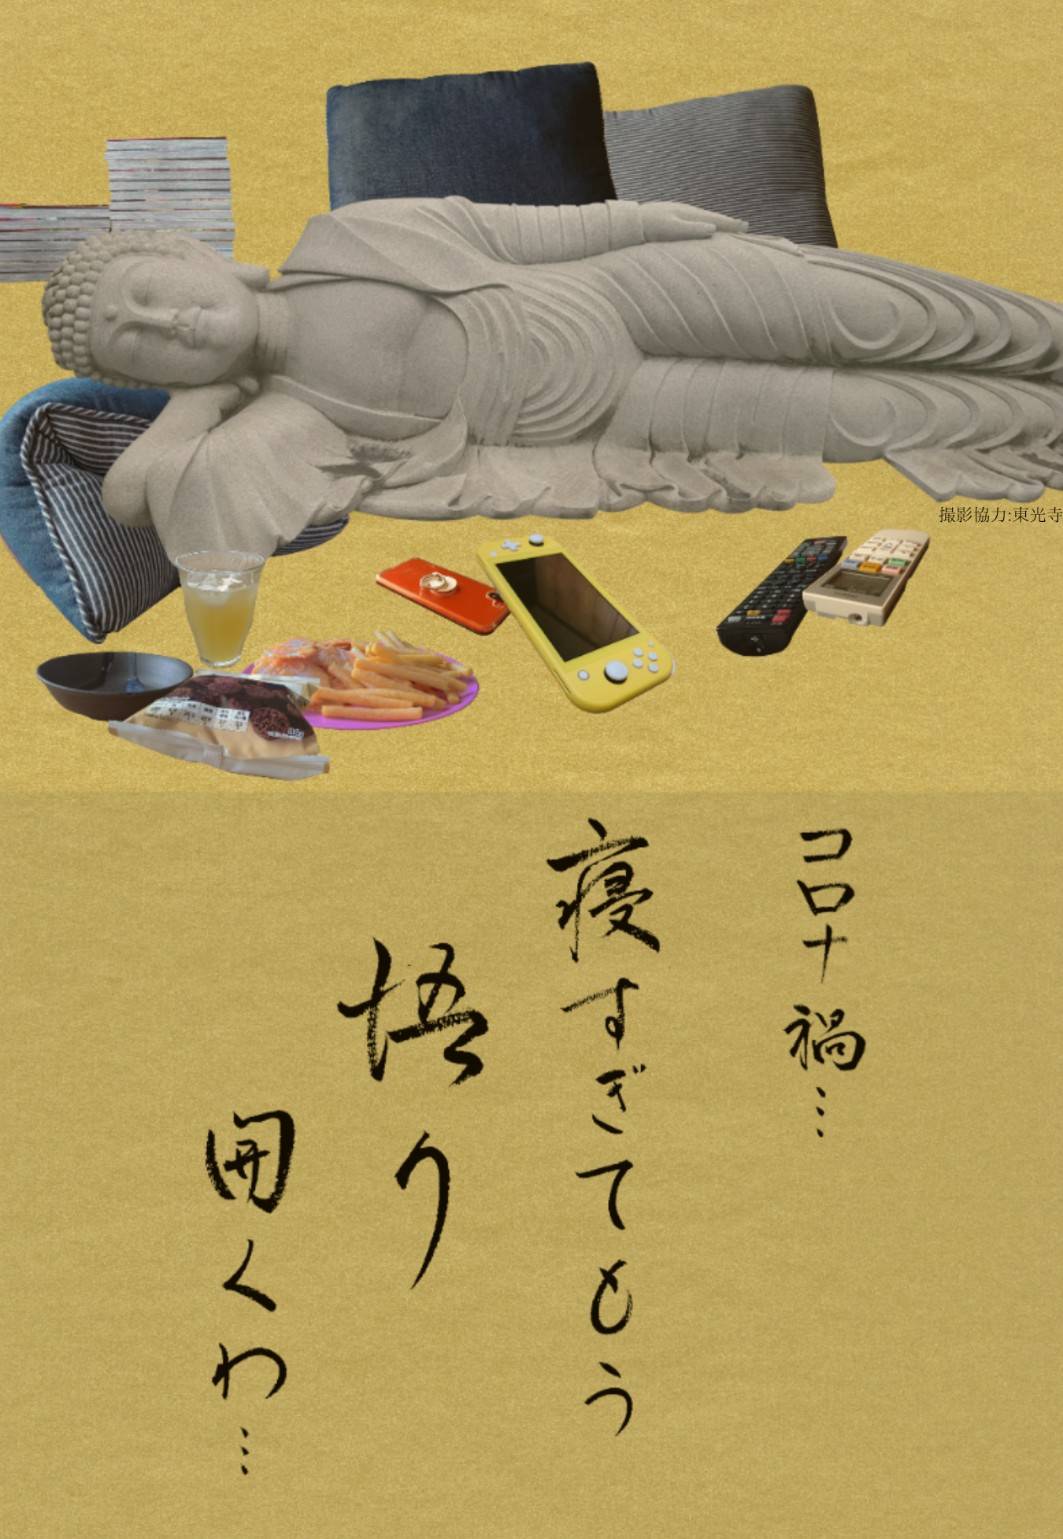 撮影協力:東光寺
コロナ禍…
寝すぎてもう
悟り
開くわ…